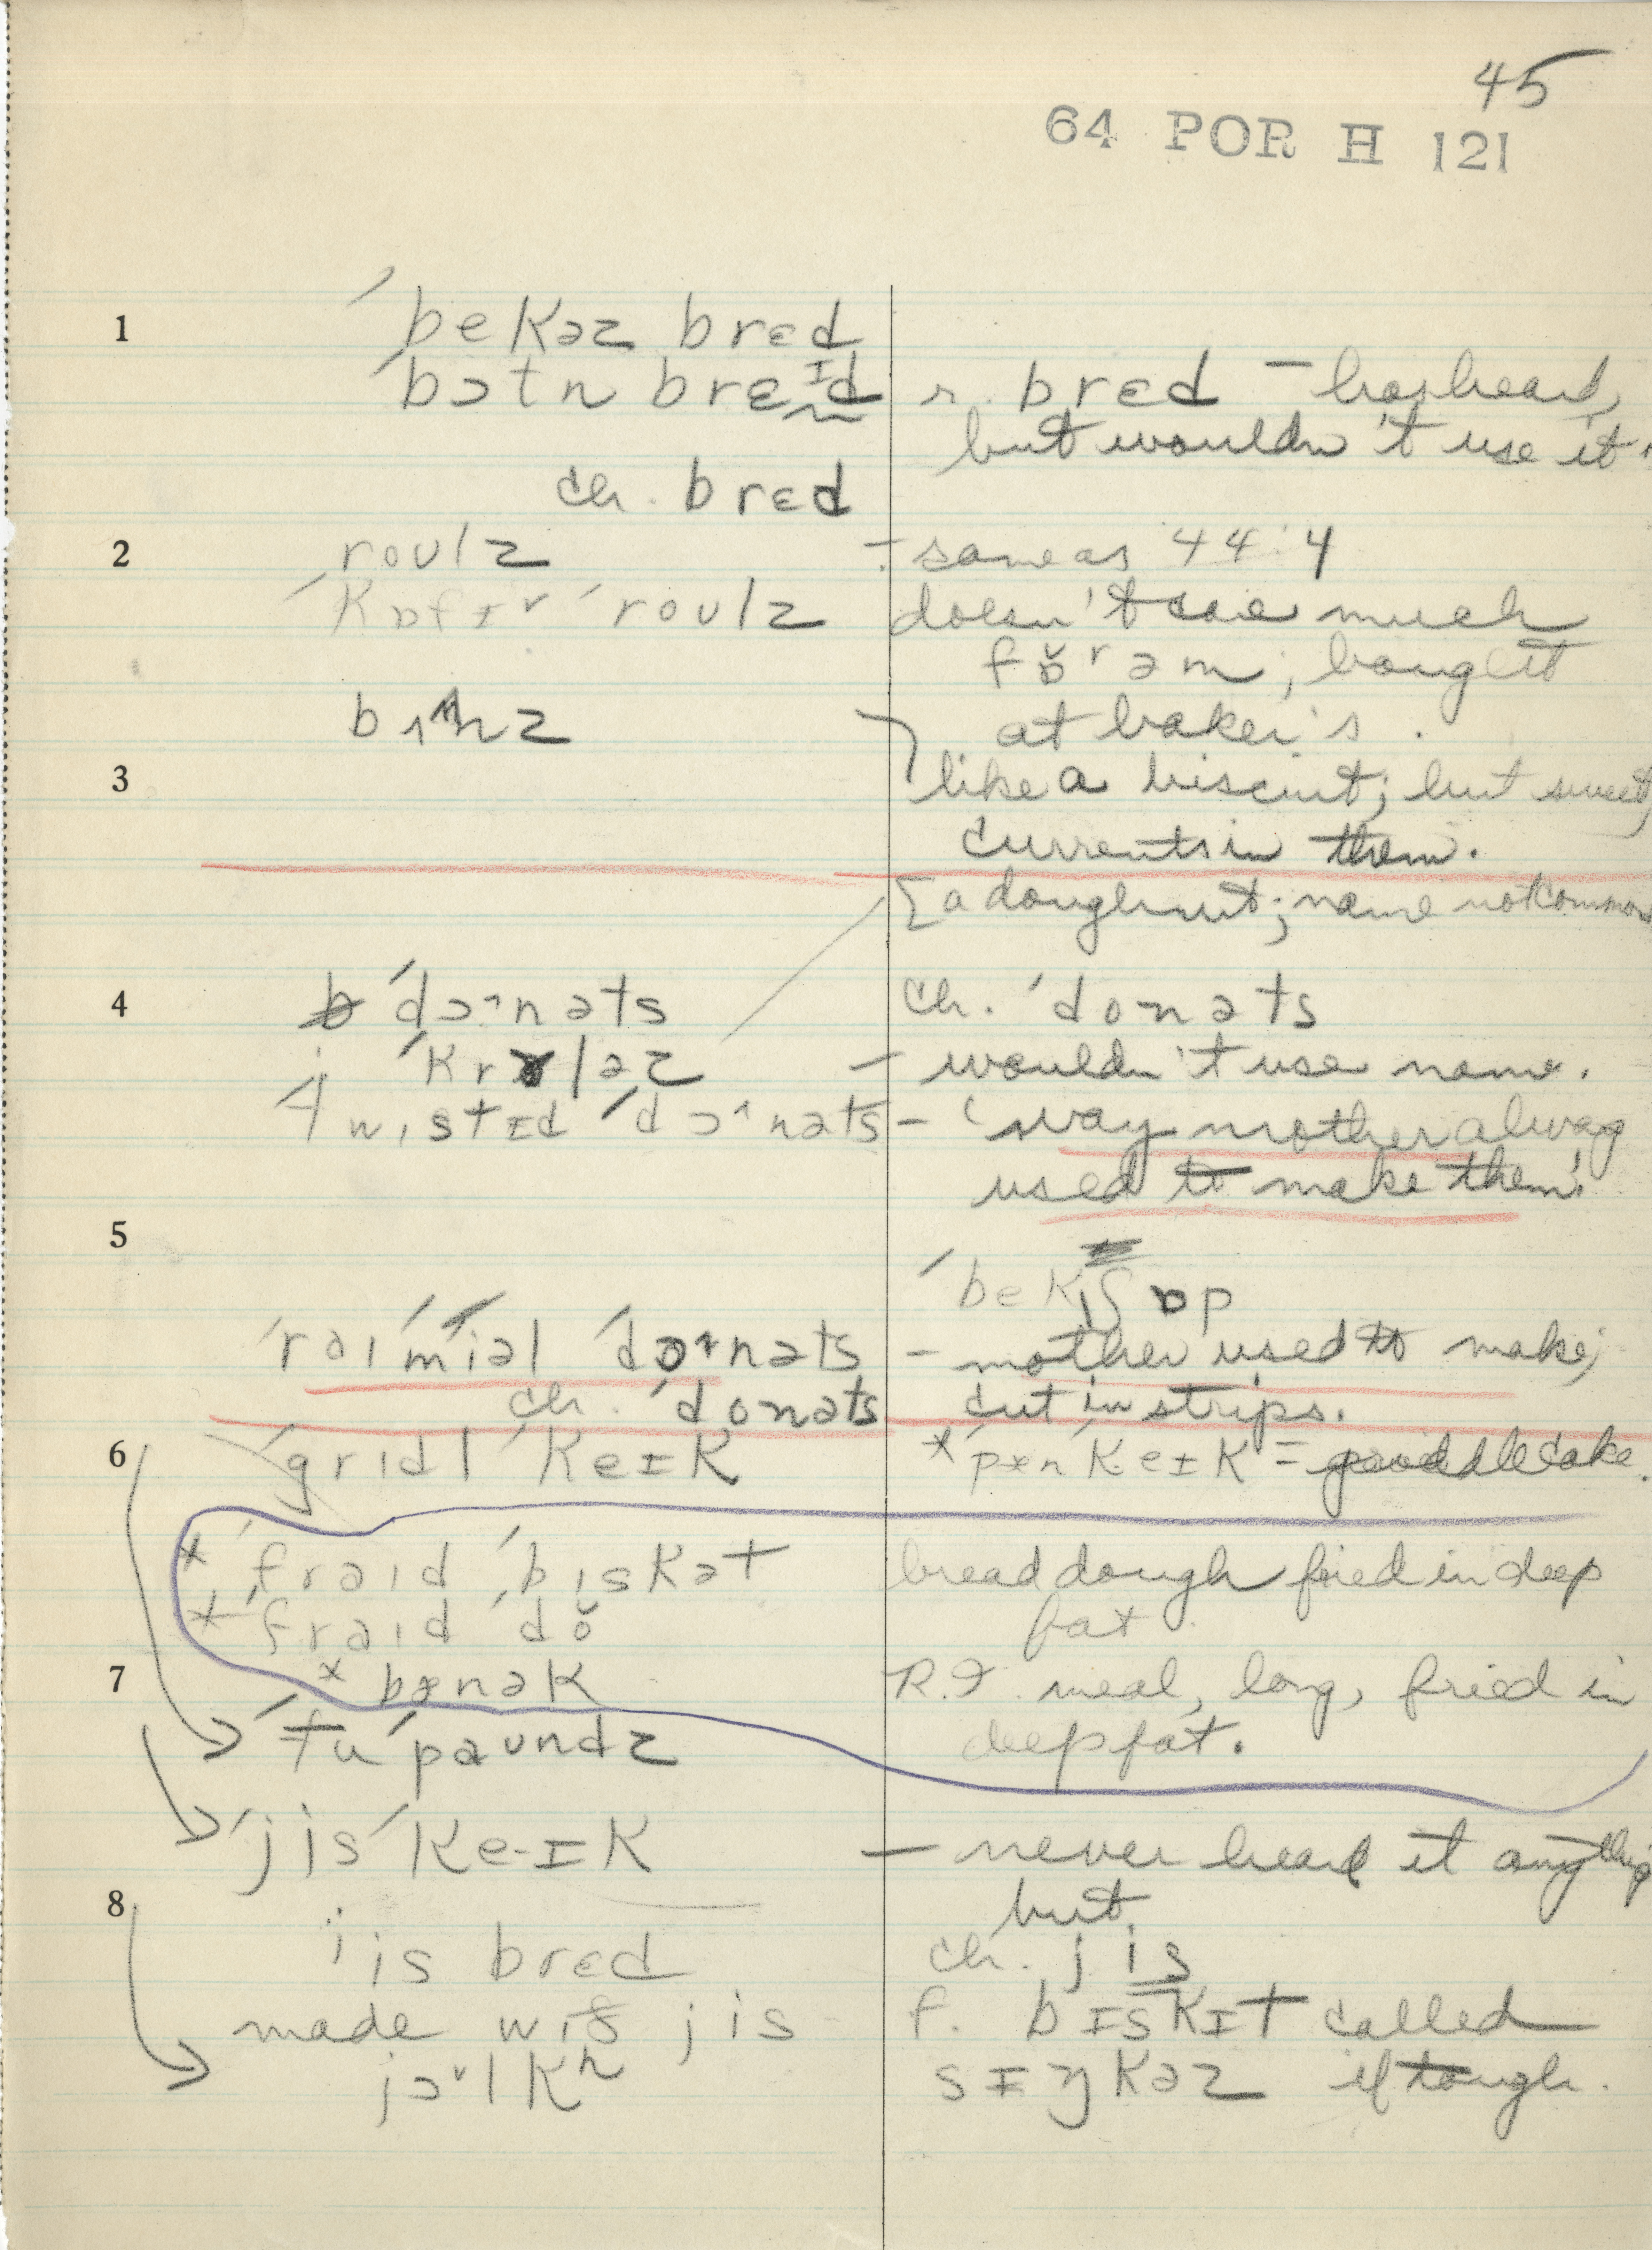 45
64 POR H 121
1 ˊbekəz brɛd
ˊbɔtn brɛɪd r. brɛd – has heard,
but wouldn't use it.
ch. brɛd
2 roulz – same as 44.4
ˊkɒfɪ ˊroulz doesn't care much
fɒ̆rəm; bought
bʌnz at baker's.
3 like a biscuit; but sweet,
currents in them.
[a doughnut; name not common
4 ˊdɔ˄nəts ch. ˊdonəts
ˊkrʌləz – wouldn't use name.
ˊtwɪstɪd ˊdɔ˄nəts – 'way mother alwag
used to make them'.
5
ˊbekɪʃɒp
ˊraɪ ˊmiəl ˊdɔ˄nəts – mother used to make;
ch. ˊdonəts cut in strips.
6 ˊgrɪdl ˊkeɪk *ˊpænˊkeɪk = griddle cake.
* ˊfraɪd ˊbɪskət bread dough fried in deep
* ˊfraɪd ˊdŏ fat.
7 * bænək R.I. meal, long, fried in
ˊtu ˊpaundz deep fat.
ˊjis ˊke·ɪk – never heard it anything
8 but
jis brɛd ch. jis
made wɪð jis f. bɪskɪt called
jɔ˅lkh sɪŋkəz if tough.